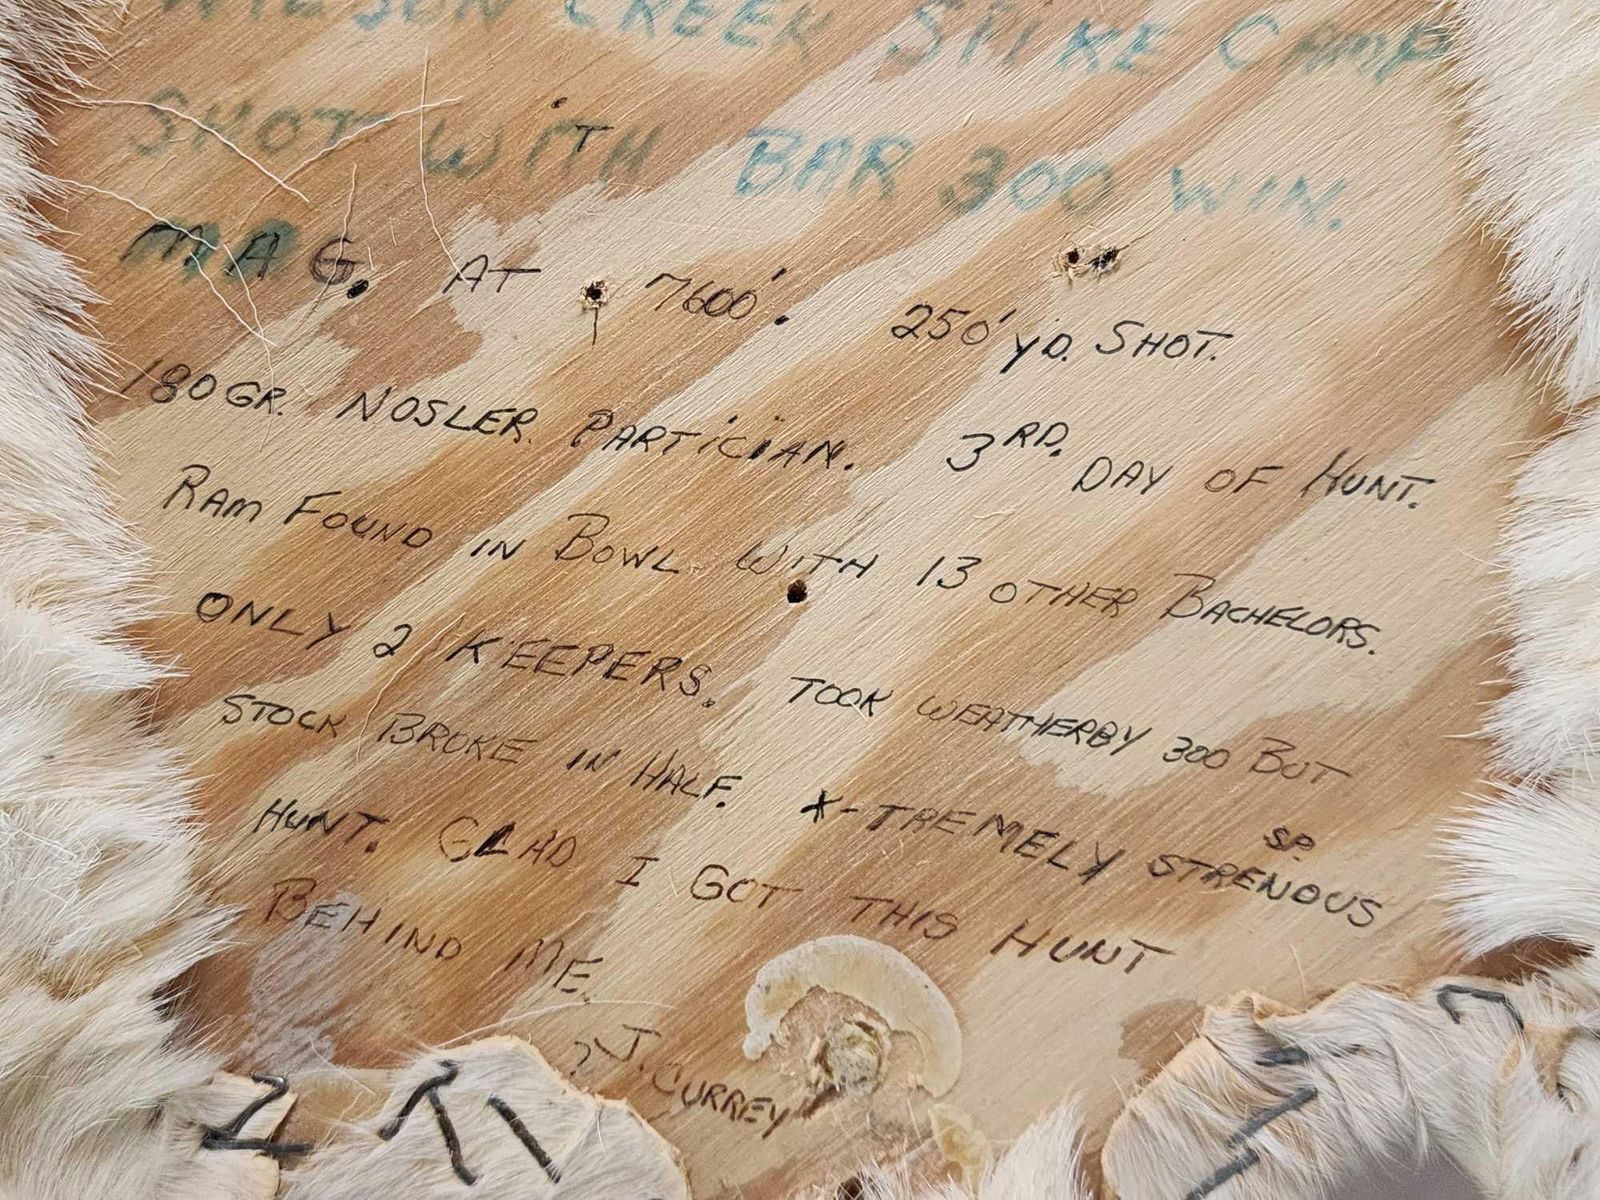 WILSON CREEK SPIKE CAMP
SHOT WITH BAR 300 WIN.
MAG. AT 7600'. 250' YD. SHOT.
180 GR. NOSLER PARTICIAN. 3RD. DAY OF HUNT.
RAM FOUND IN BOWL WITH 13 OTHER BACHELORS.
ONLY 2 KEEPERS. TOOK WEATHERBY 300 BUT
STOCK BROKE IN HALF. X-TREMELY STRENOUS SP.
HUNT. GLAD I GOT THIS HUNT
BEHIND ME.
? J. CURREY